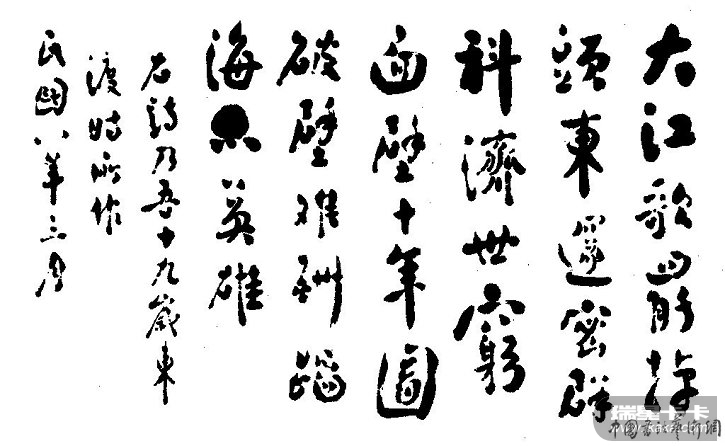 大江歌罷掉
頭東邃密群
科濟世窮
面壁十年圖
破壁难酬蹈
海亦英雄
右詩乃吾十九歲東
渡时所作
民國八年三月
瑞星卡卡